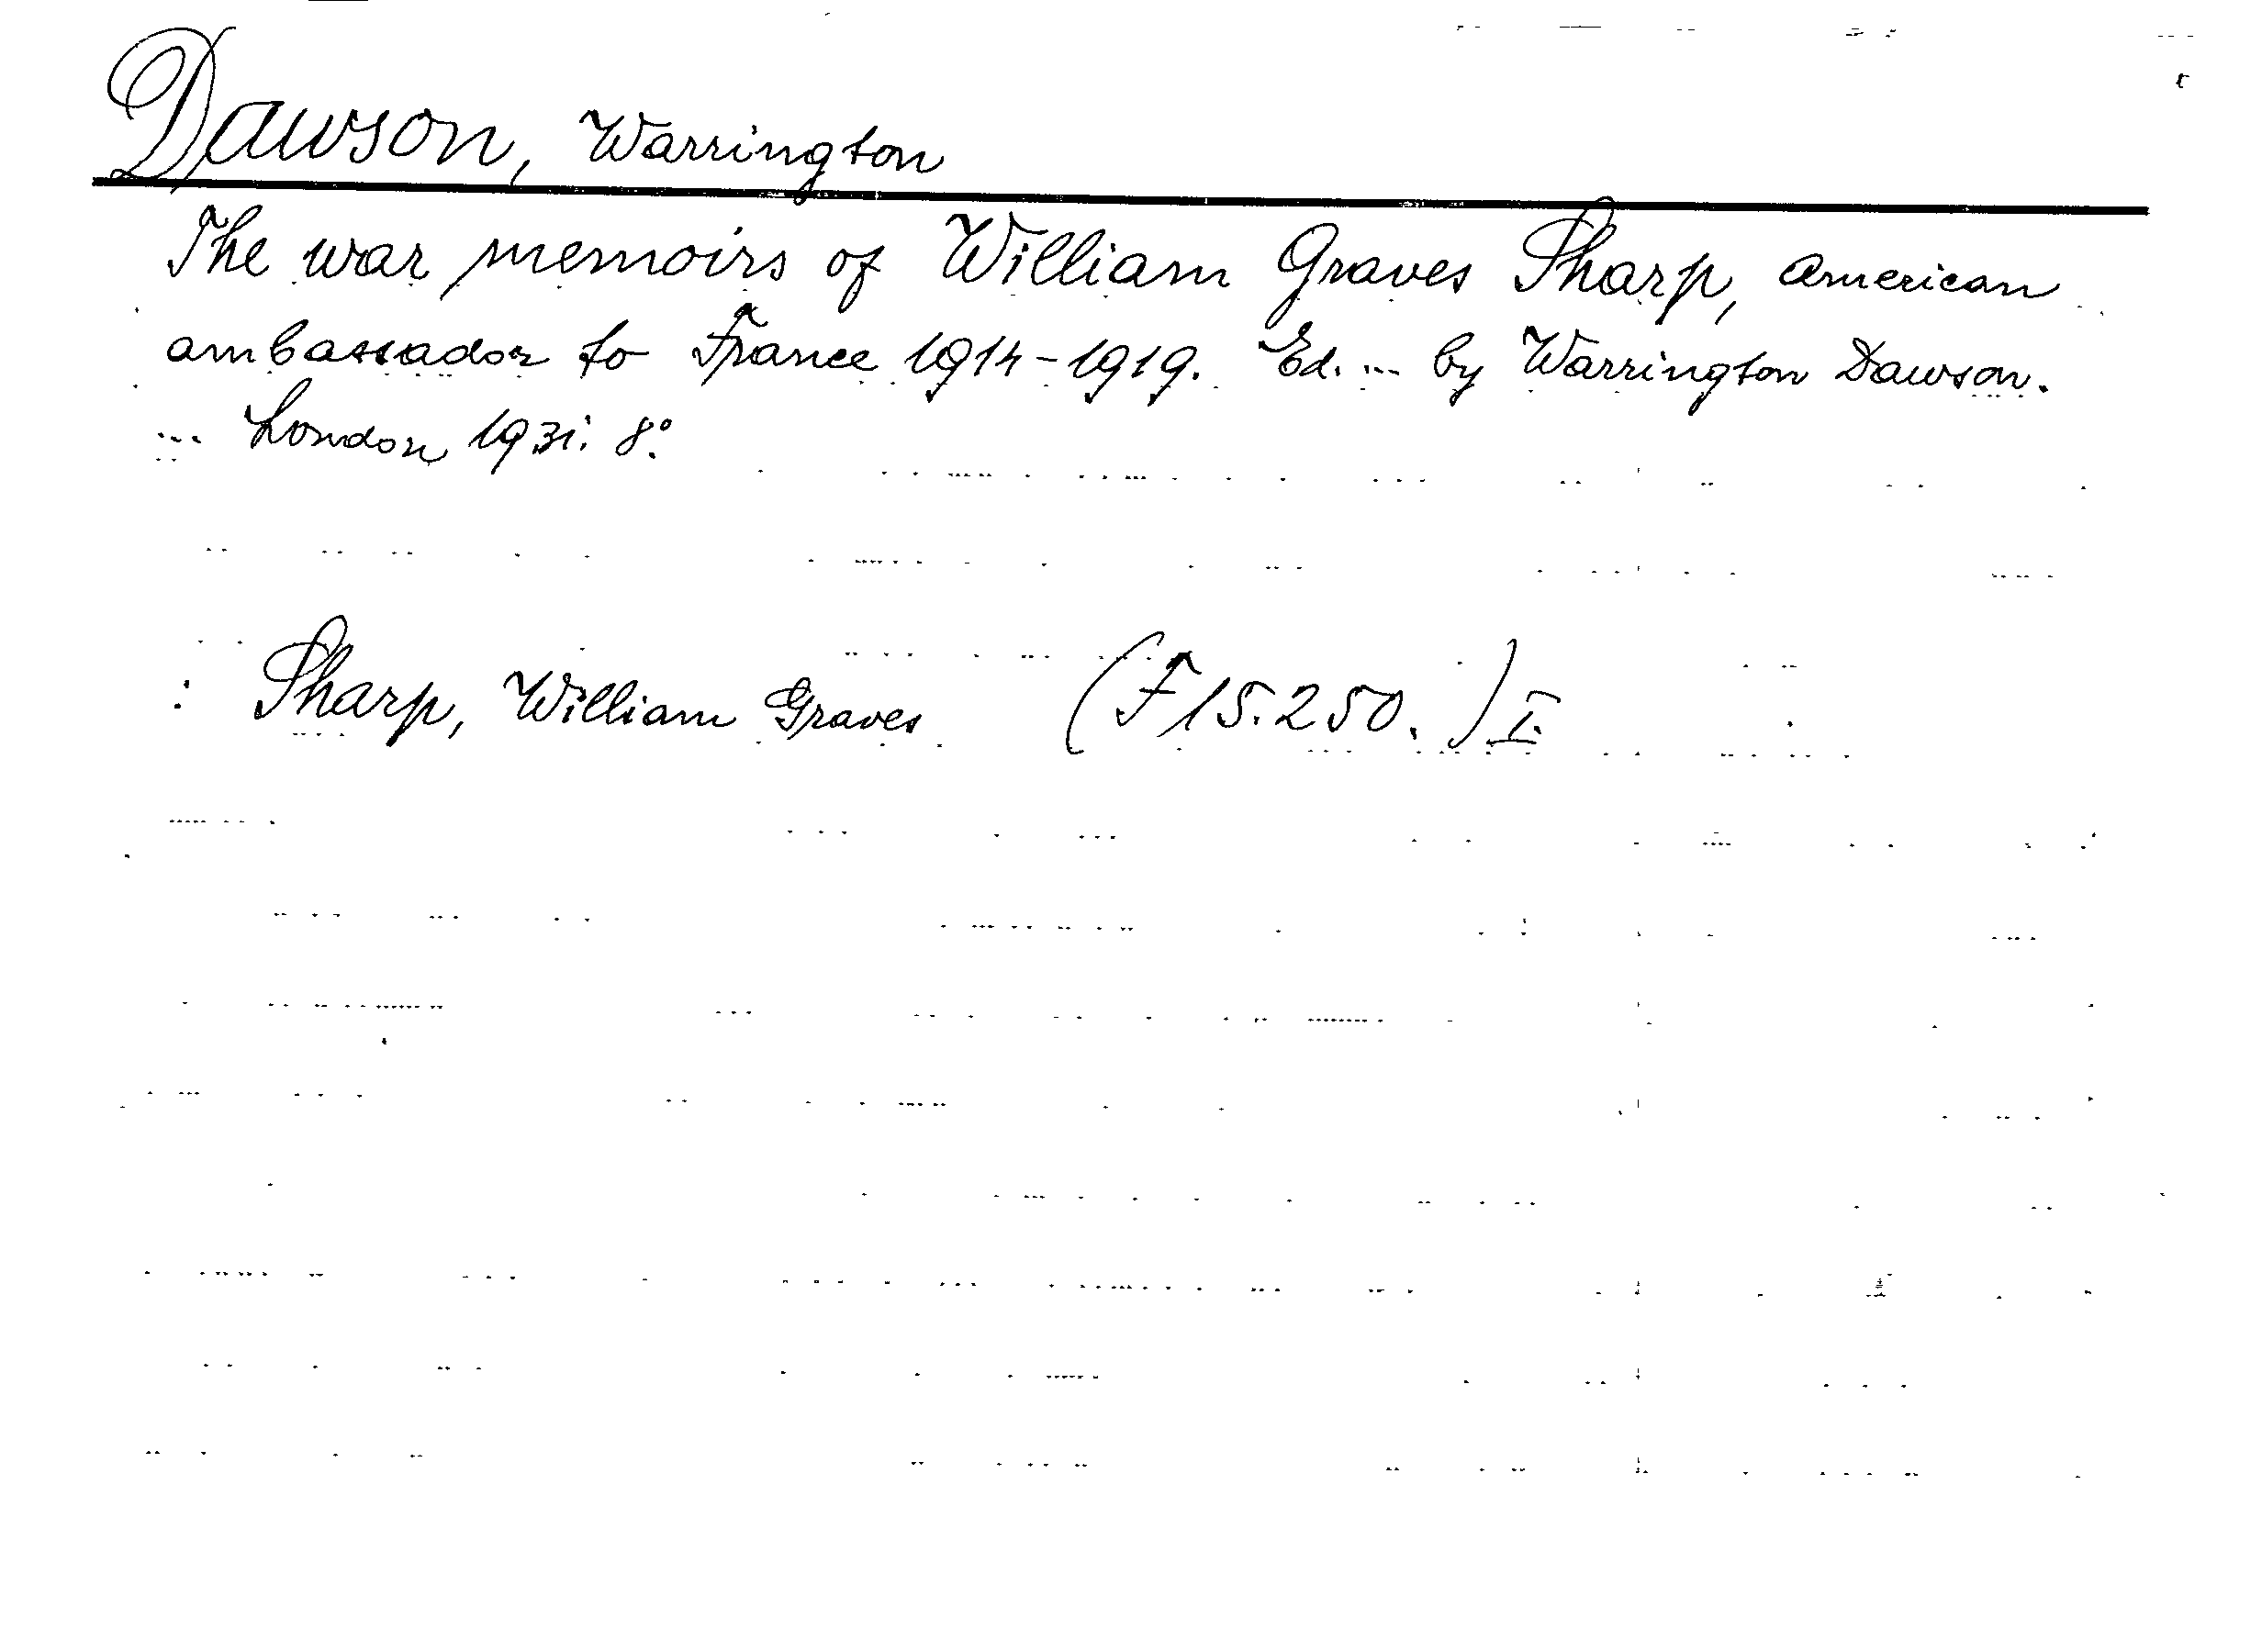 Dawson, Warrington
The war memoirs of William Graves Sharp, American
ambassador to France 1914-1919. Ed. ... by Warrington Dawson.
... London 1931. 8°.
: Sharp, William Graves (F 15.250.) I.